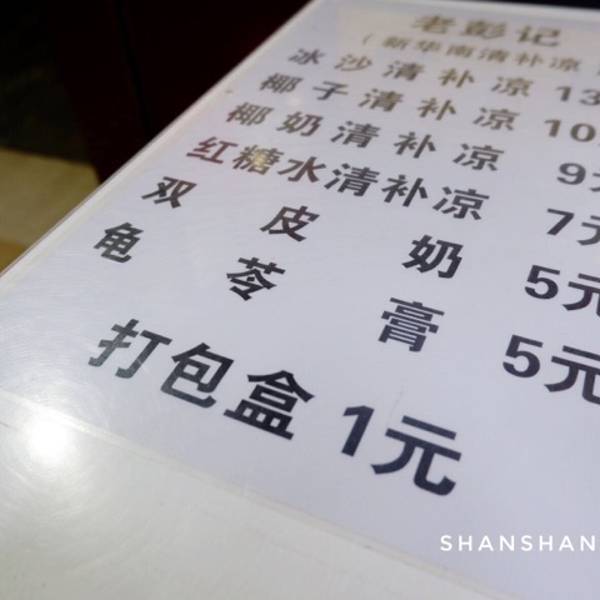 老彭记
(新华南清补凉
冰沙清补凉 13
椰子清补凉 10
椰奶清补凉 9元
红糖水清补凉 7元
双皮奶 5元
龟苓膏 5元
打包盒 1元
SHANSHAN